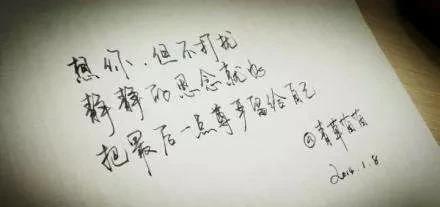 想你，但不打扰
静静的思念就好
把最后一点尊严留给自己
@青草茵茵
2014.1.8